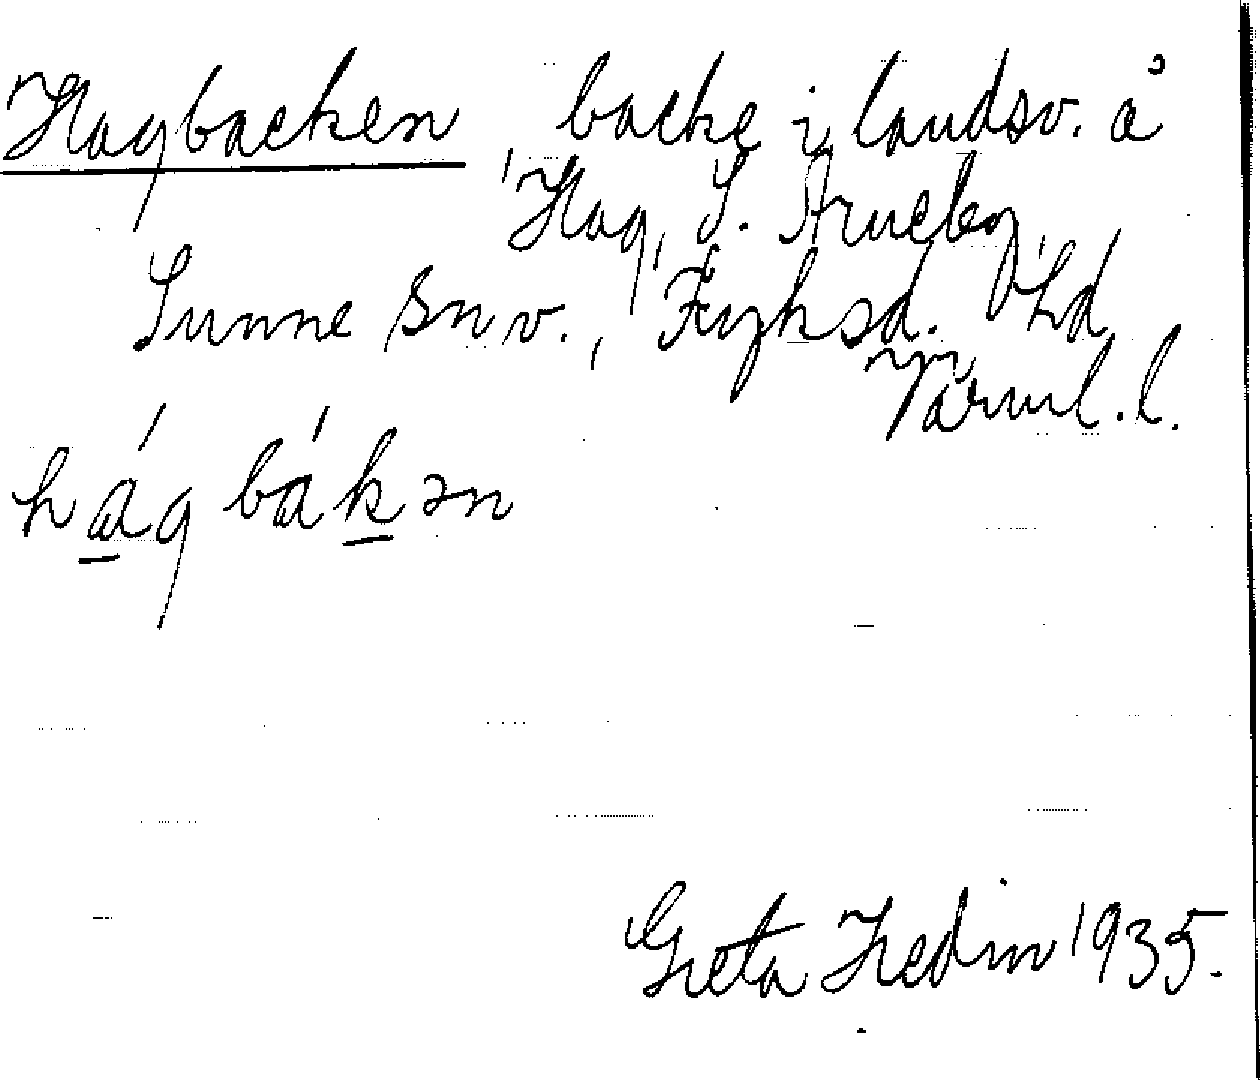 Hagbacken, backe i landsv. å
Hag, S. Arneby,
Sunne snv., Fryksd. hd
Värml. l.
hág bákən
Greta Hedin 1935.